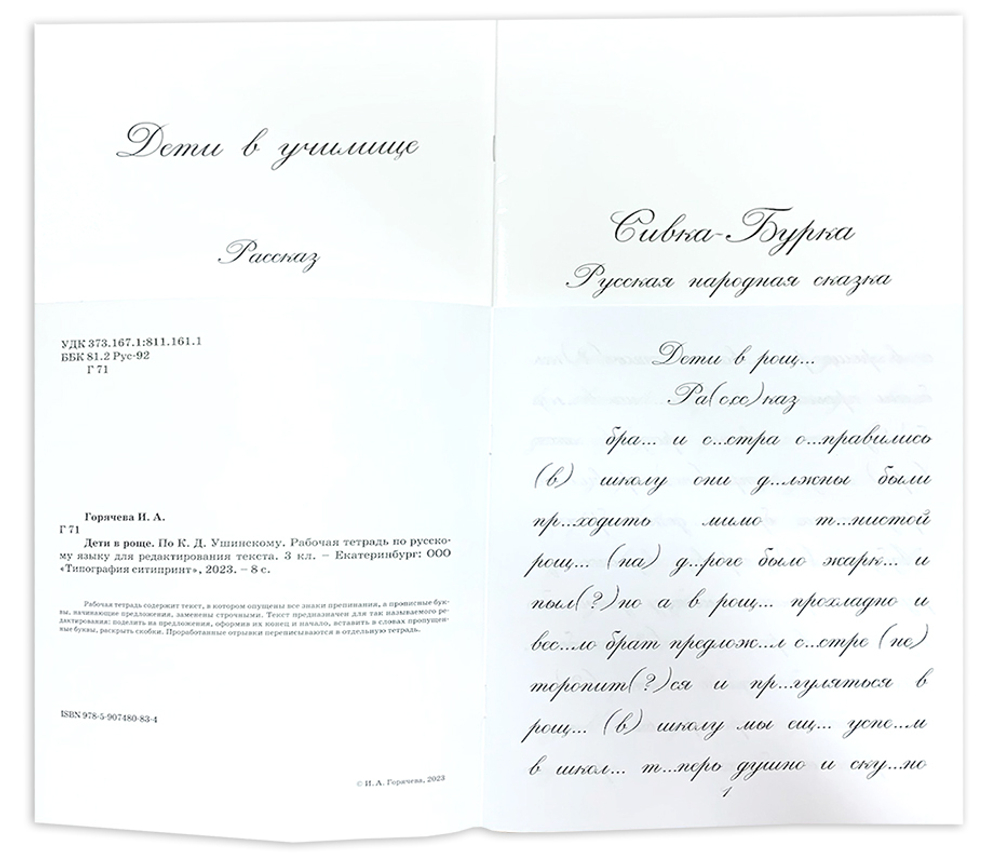 Дети в училище
Рассказ
Сивка-Бурка
Русская народная сказка
УДК 373.167.1:811.161.1
ББК 81.2 Рус-92
Г 71
Горячева И. А.
Г 71
Дети в роще. По К. Д. Ушинскому. Рабочая тетрадь по русско-
му языку для редактирования текста. 3 кл. – Екатеринбург: ООО
«Типография ситипринт», 2023. – 8 с.
Рабочая тетрадь содержит текст, в котором опущены все знаки препинания, а прописные бук-
вы, начинающие предложения, заменены строчными. Текст предназначен для так называемого ре-
дактирования: поделить на предложения, оформив их конец и начало, вставить в словах пропущен-
ные буквы, раскрыть скобки. Проработанные отрывки переписываются в отдельную тетрадь.
ISBN 978-5-907480-83-4
© И. А. Горячева, 2023
Дети в рощ...
Ра(скс)каз
бра... и с...стра о...правились
(в) школу они д...лжны были
пр...ходить мимо т...нистой
рощ... (на) д...роге было жарк... и
пыл(?)но а в рощ... прохладно и
вес...ло брат предлож...л с...стре (не)
торопит(?)ся и пр...гуляться в
рощ... (в) школу мы ещ... успе...м
в школ... т...перь душно и ску...но
1